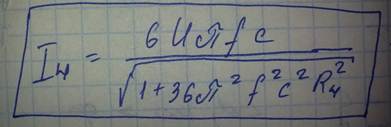 I₄ = 6Uπfc / √(1+36π²f²c²R₄²)